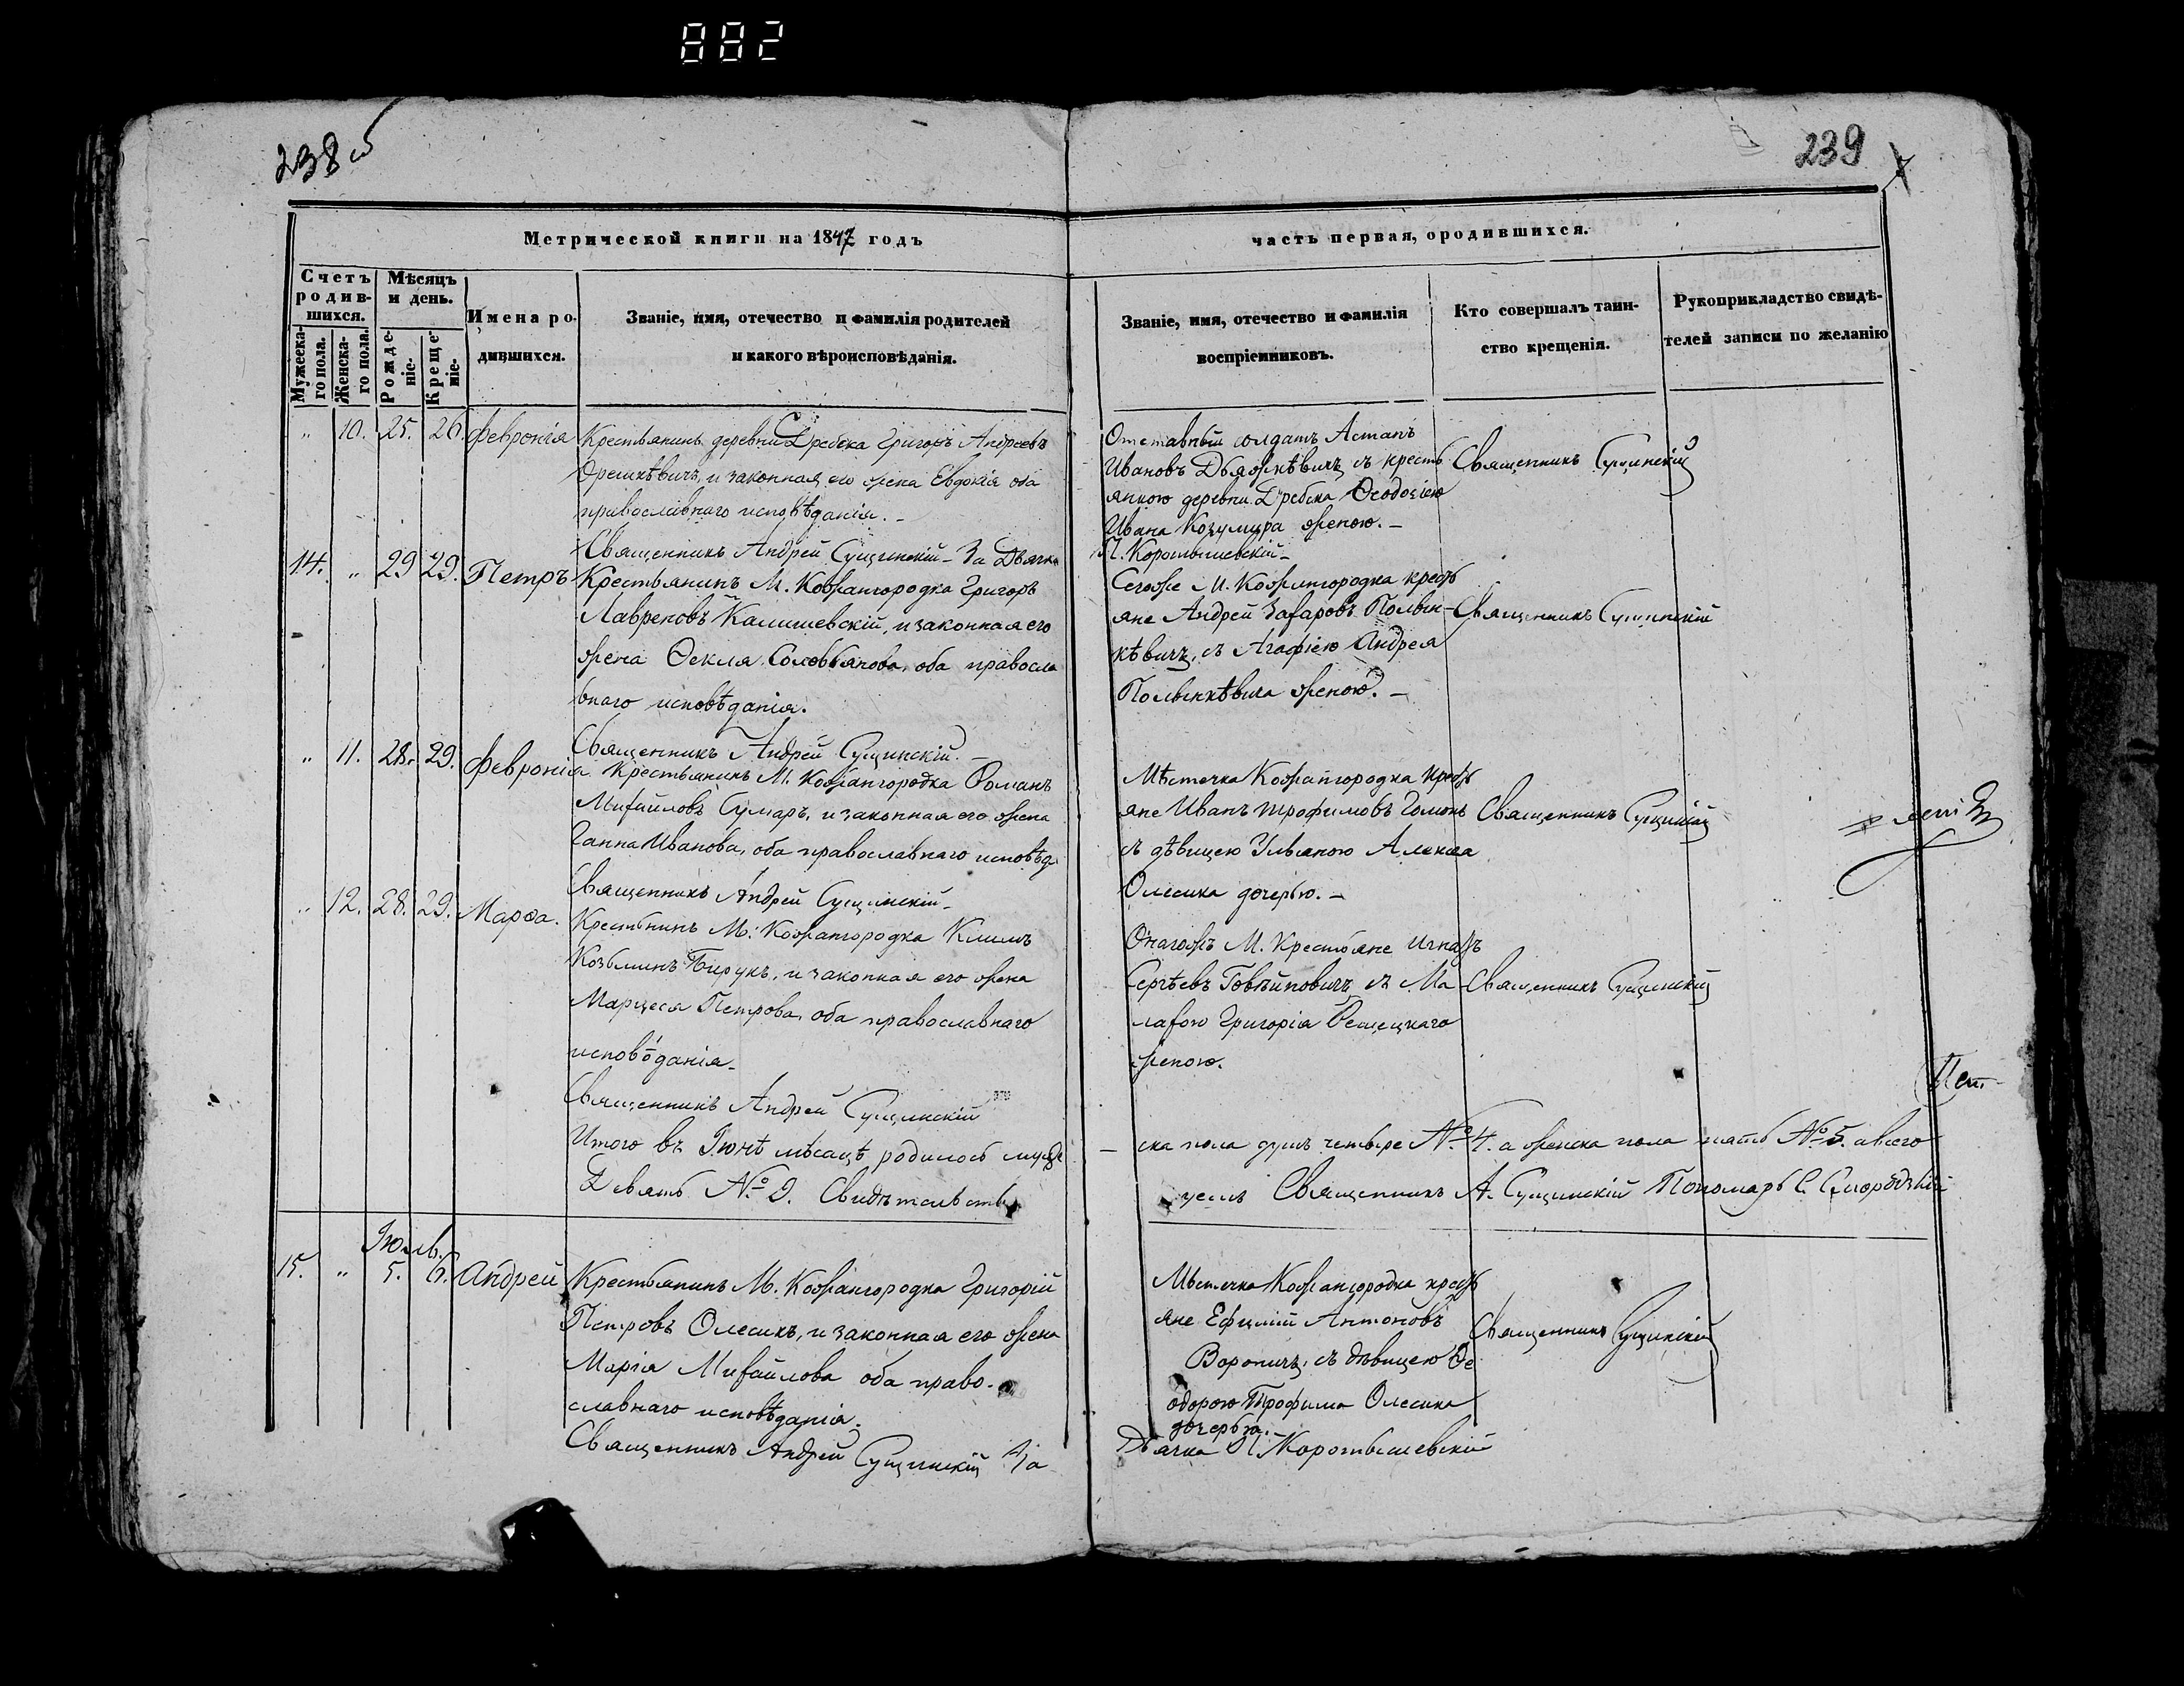 882
238 об
239
Метрической книги на 1847 годъ
часть первая, о родившихся.
Счетъ родив-
шихся.
Мѣсяцъ
и день.
Мужеска-
го пола.
Женска-
го пола.
Рожде-
ніе.
Креще-
ніе.
Имена ро-
дившихся.
Званіе, имя, отечество и фамилія родителей
и какого вѣроисповѣданія.
Званіе, имя, отечество и фамилія
воспріемниковъ.
Кто совершалъ таин-
ство крещенія.
Рукоприкладство свидѣ-
телей записи по желанію
" 10. 25. 26. Февронія
Крестьянинъ деревни Дребска Григоръ Андреевъ
Орешкѣвичъ, и законная его жена Евдокія оба
православнаго исповѣданія. -
Священникъ Андрей Сущинскій - За Дьячка
Отставный солдатъ Астапъ
Ивановъ Дяжкѣвичъ съ кресть
янкою деревни Дребска Ѳеодосіею
Ивана Козумира женою. -
П. Коротышевскій -
Священникъ Сущинскій
14. " 29 29. Петръ
Крестьянинъ М. Кожангородка Григоръ
Лавреновъ Калишевскій, и законная его
жена Ѳекла Соловьянова, оба правосла
внаго исповѣданія.
Священникъ Андрей Сущинскій. -
Сегоже М. Кожангородка кресть
яне Андрей Захаровъ Полын-
кѣвичъ, съ Агафіею Андрея
Полынкѣвича женою. -
Священникъ Сущинскій
" 11. 28. 29. Февронія
Крестьянинъ М. Кожангородка Романъ
Михайловъ Сумаръ, и законная его жена
Ганна Иванова, оба православнаго исповѣд.
Священникъ Андрей Сущинскій -
Мѣстечка Кожангородка кресть
яне Иванъ Трофимовъ Гомонъ
съ дѣвицею Ульяною Алексѣя
Олесика дочерью. -
Священникъ Сущинскій
" 12. 28. 29. Марфа.
Крестьнинъ М. Кожангородка Климъ
Козьминъ Бирукъ, и законная его жена
Марцеся Петрова, оба православнаго
исповѣданія -
Священникъ Андрей Сущинскій
Онагожъ М. Крестьяне Игнатъ
Сергѣевъ Говѣйновичъ съ Ма
лахою Григорія Рещецкаго
женою.
Священникъ Сущинскій
Итого въ Іюнѣ мѣсацѣ родилось муже
ска пола душъ четыре № 4. а женска пола пять № 5. а всего
Девять № 9. Свидѣтельств
уемъ Священникъ А. Сущинскій Пономарь С.
Іюль.
15. " 5. 6. Андрей
Крестьянинъ М. Кожангородка Григорій
Петровъ Олесикъ, и законная его жена
Марія Михайлова оба право-
славнаго исповѣданія.
Священникъ Андрей Сущинскій За
Мѣстечка Кожангородка кресть
яне Ефимій Антоновъ
Вороничъ, съ дѣвицею Ѳе
одорою Трофима Олесика
дочерью.
Дьячка П. Коротышевскій
Священникъ Сущинскій